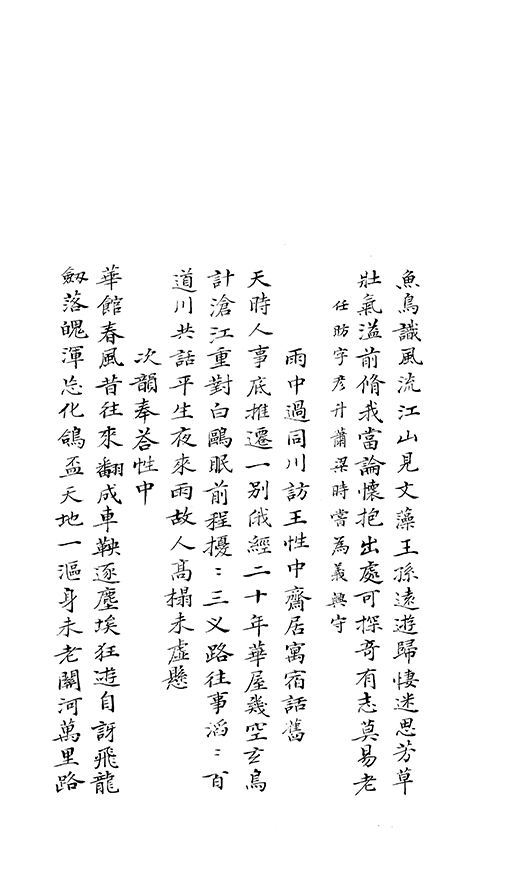 魚鳥識風流江山見文藻王孫遠遊歸悽迷思芳草
壯氣溢前脩我當論懷抱出處可探奇有志莫易老
任昉字彥升蕭梁時嘗為義興守
雨中過同川訪王性中齋居寓宿話舊
天時人事底推遷一別俄經二十年華屋幾空玄鳥
計滄江重對白鷗眠前程擾〻三义路往事滔〻百
道川共話平生夜來雨故人髙榻未虛懸
次韻奉荅性中
華館春風昔往來翻成車鞅逐塵埃狂遊自訝飛龍
劒落魄渾忘化鴿盃天地一漚身未老關河萬里路